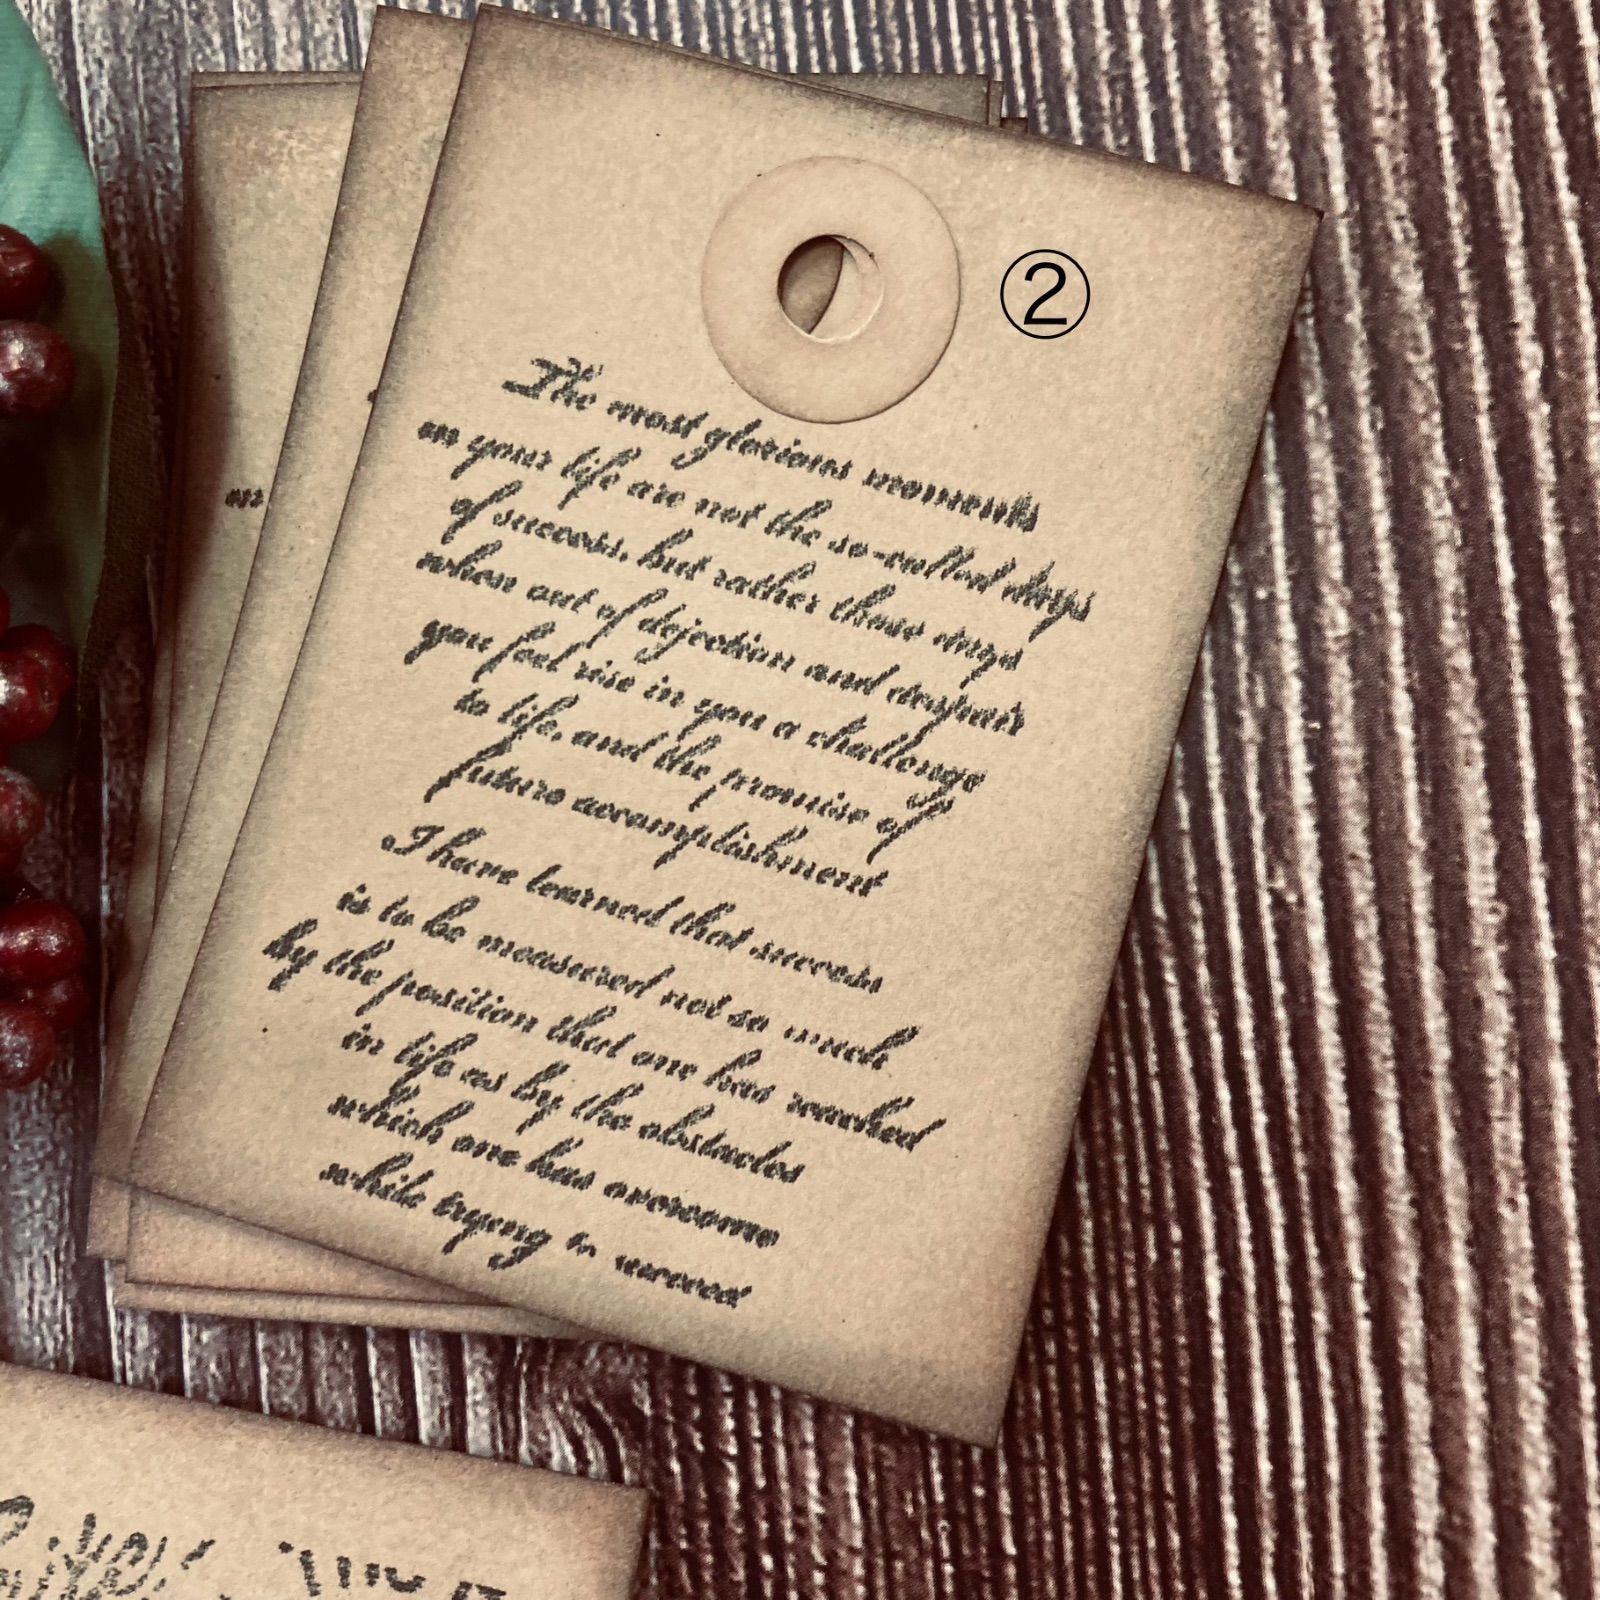 ②
The most glorious moments
in your life are not the so-called days
of success, but rather those days
when out of dejection and despair
you feel rise in you a challenge
to life, and the promise of
future accomplishment
I have learned that success
is to be measured not so much
by the position that one has reached
in life as by the obstacles
which one has overcome
while trying to succeed
on